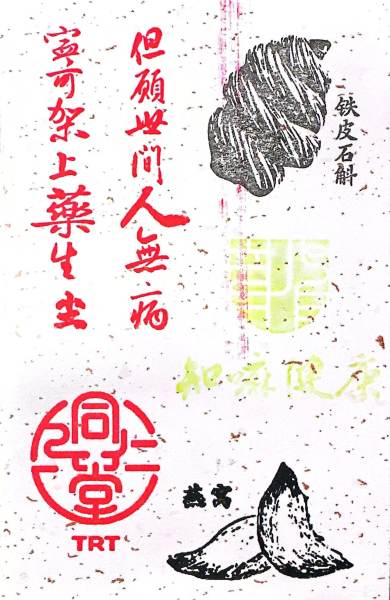 但愿世間人無病
寧可架上藥生尘
铁皮石斛
知嘛健康
同仁堂
TRT
燕窝